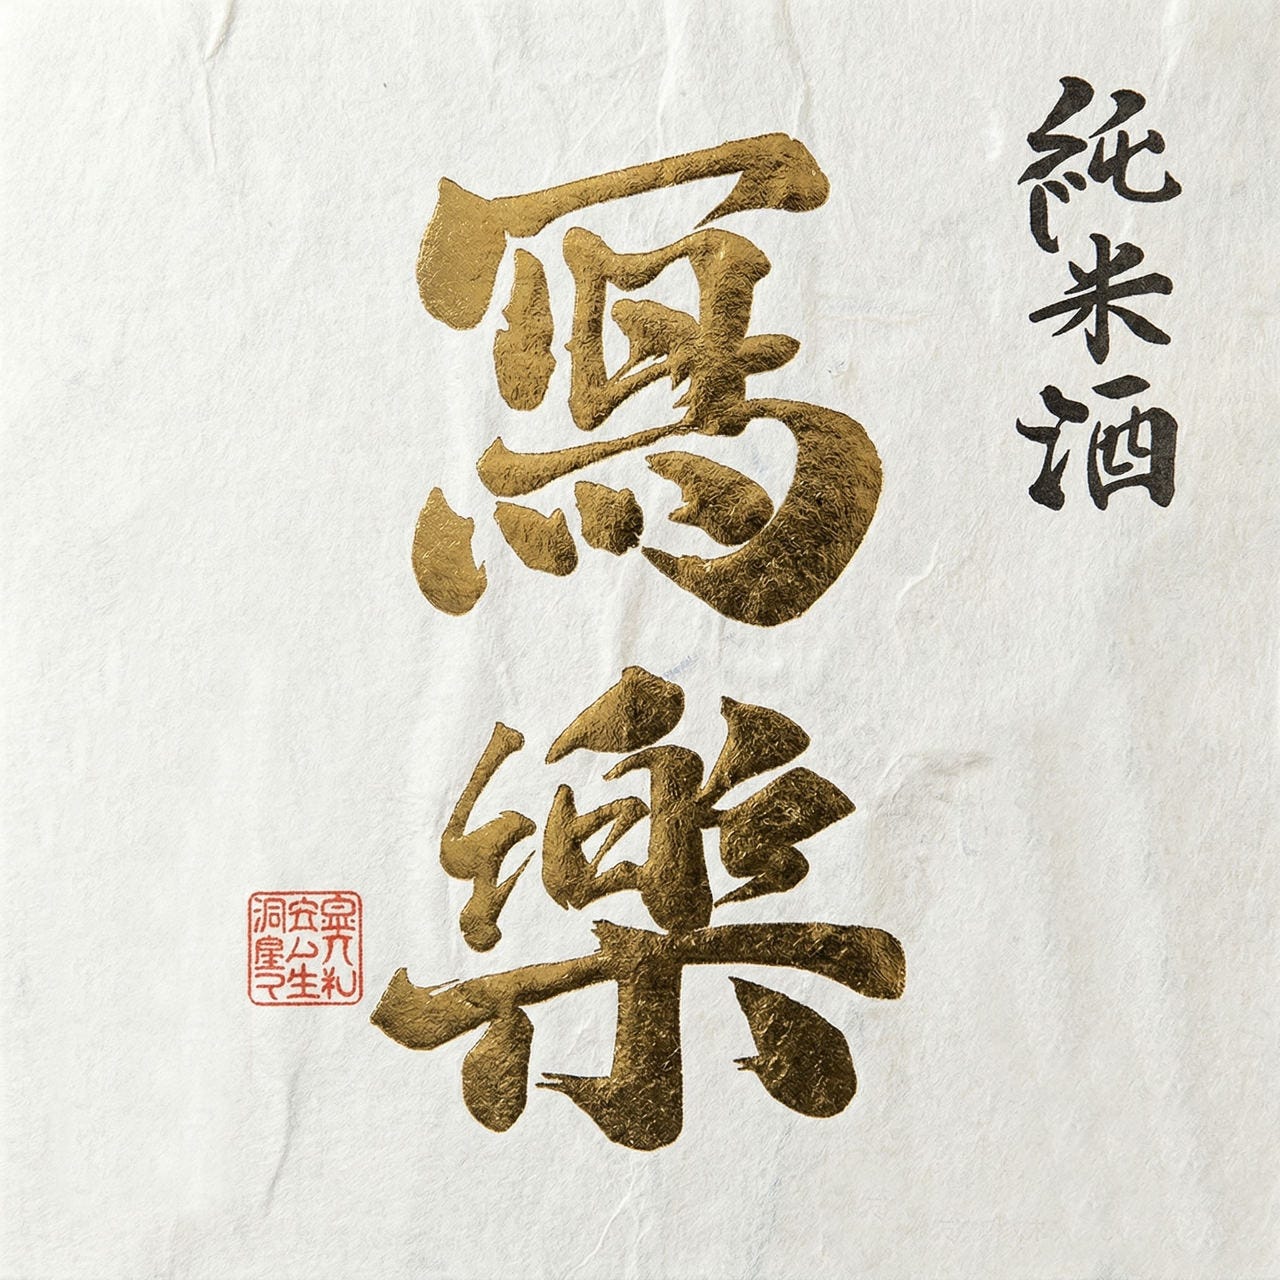 純米酒
冩樂